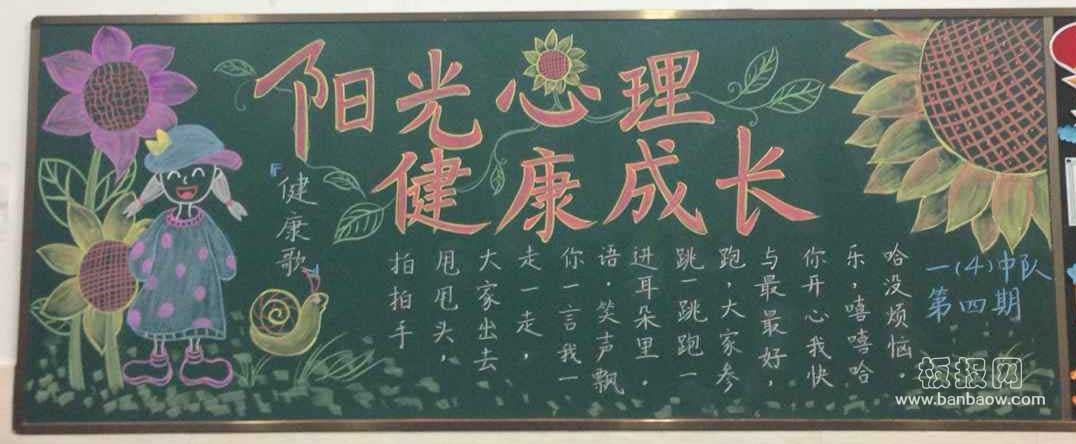 阳光心理
健康成长
『健康歌』
拍拍手
甩甩头，
大家出去
走一走，
你一言我一
语．笑声飘
进耳朵里．
跳一跳跑一
跑，大家参
与最最好，
你开心我快
乐，嘻嘻哈
哈没烦恼．
一(4)中队
第四期
板报网
www.banbaow.com